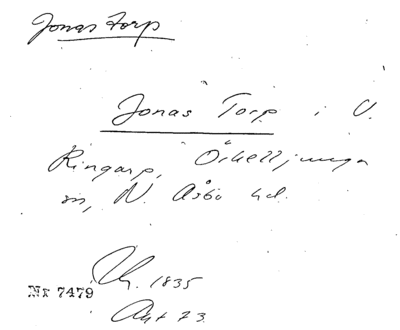 Jonas Torp
Jonas Torp i V.
Ringarp, Örkelljunga
sn, N. Åsbo hd.
Uh. 1835
Nr 7479
Akt 73.